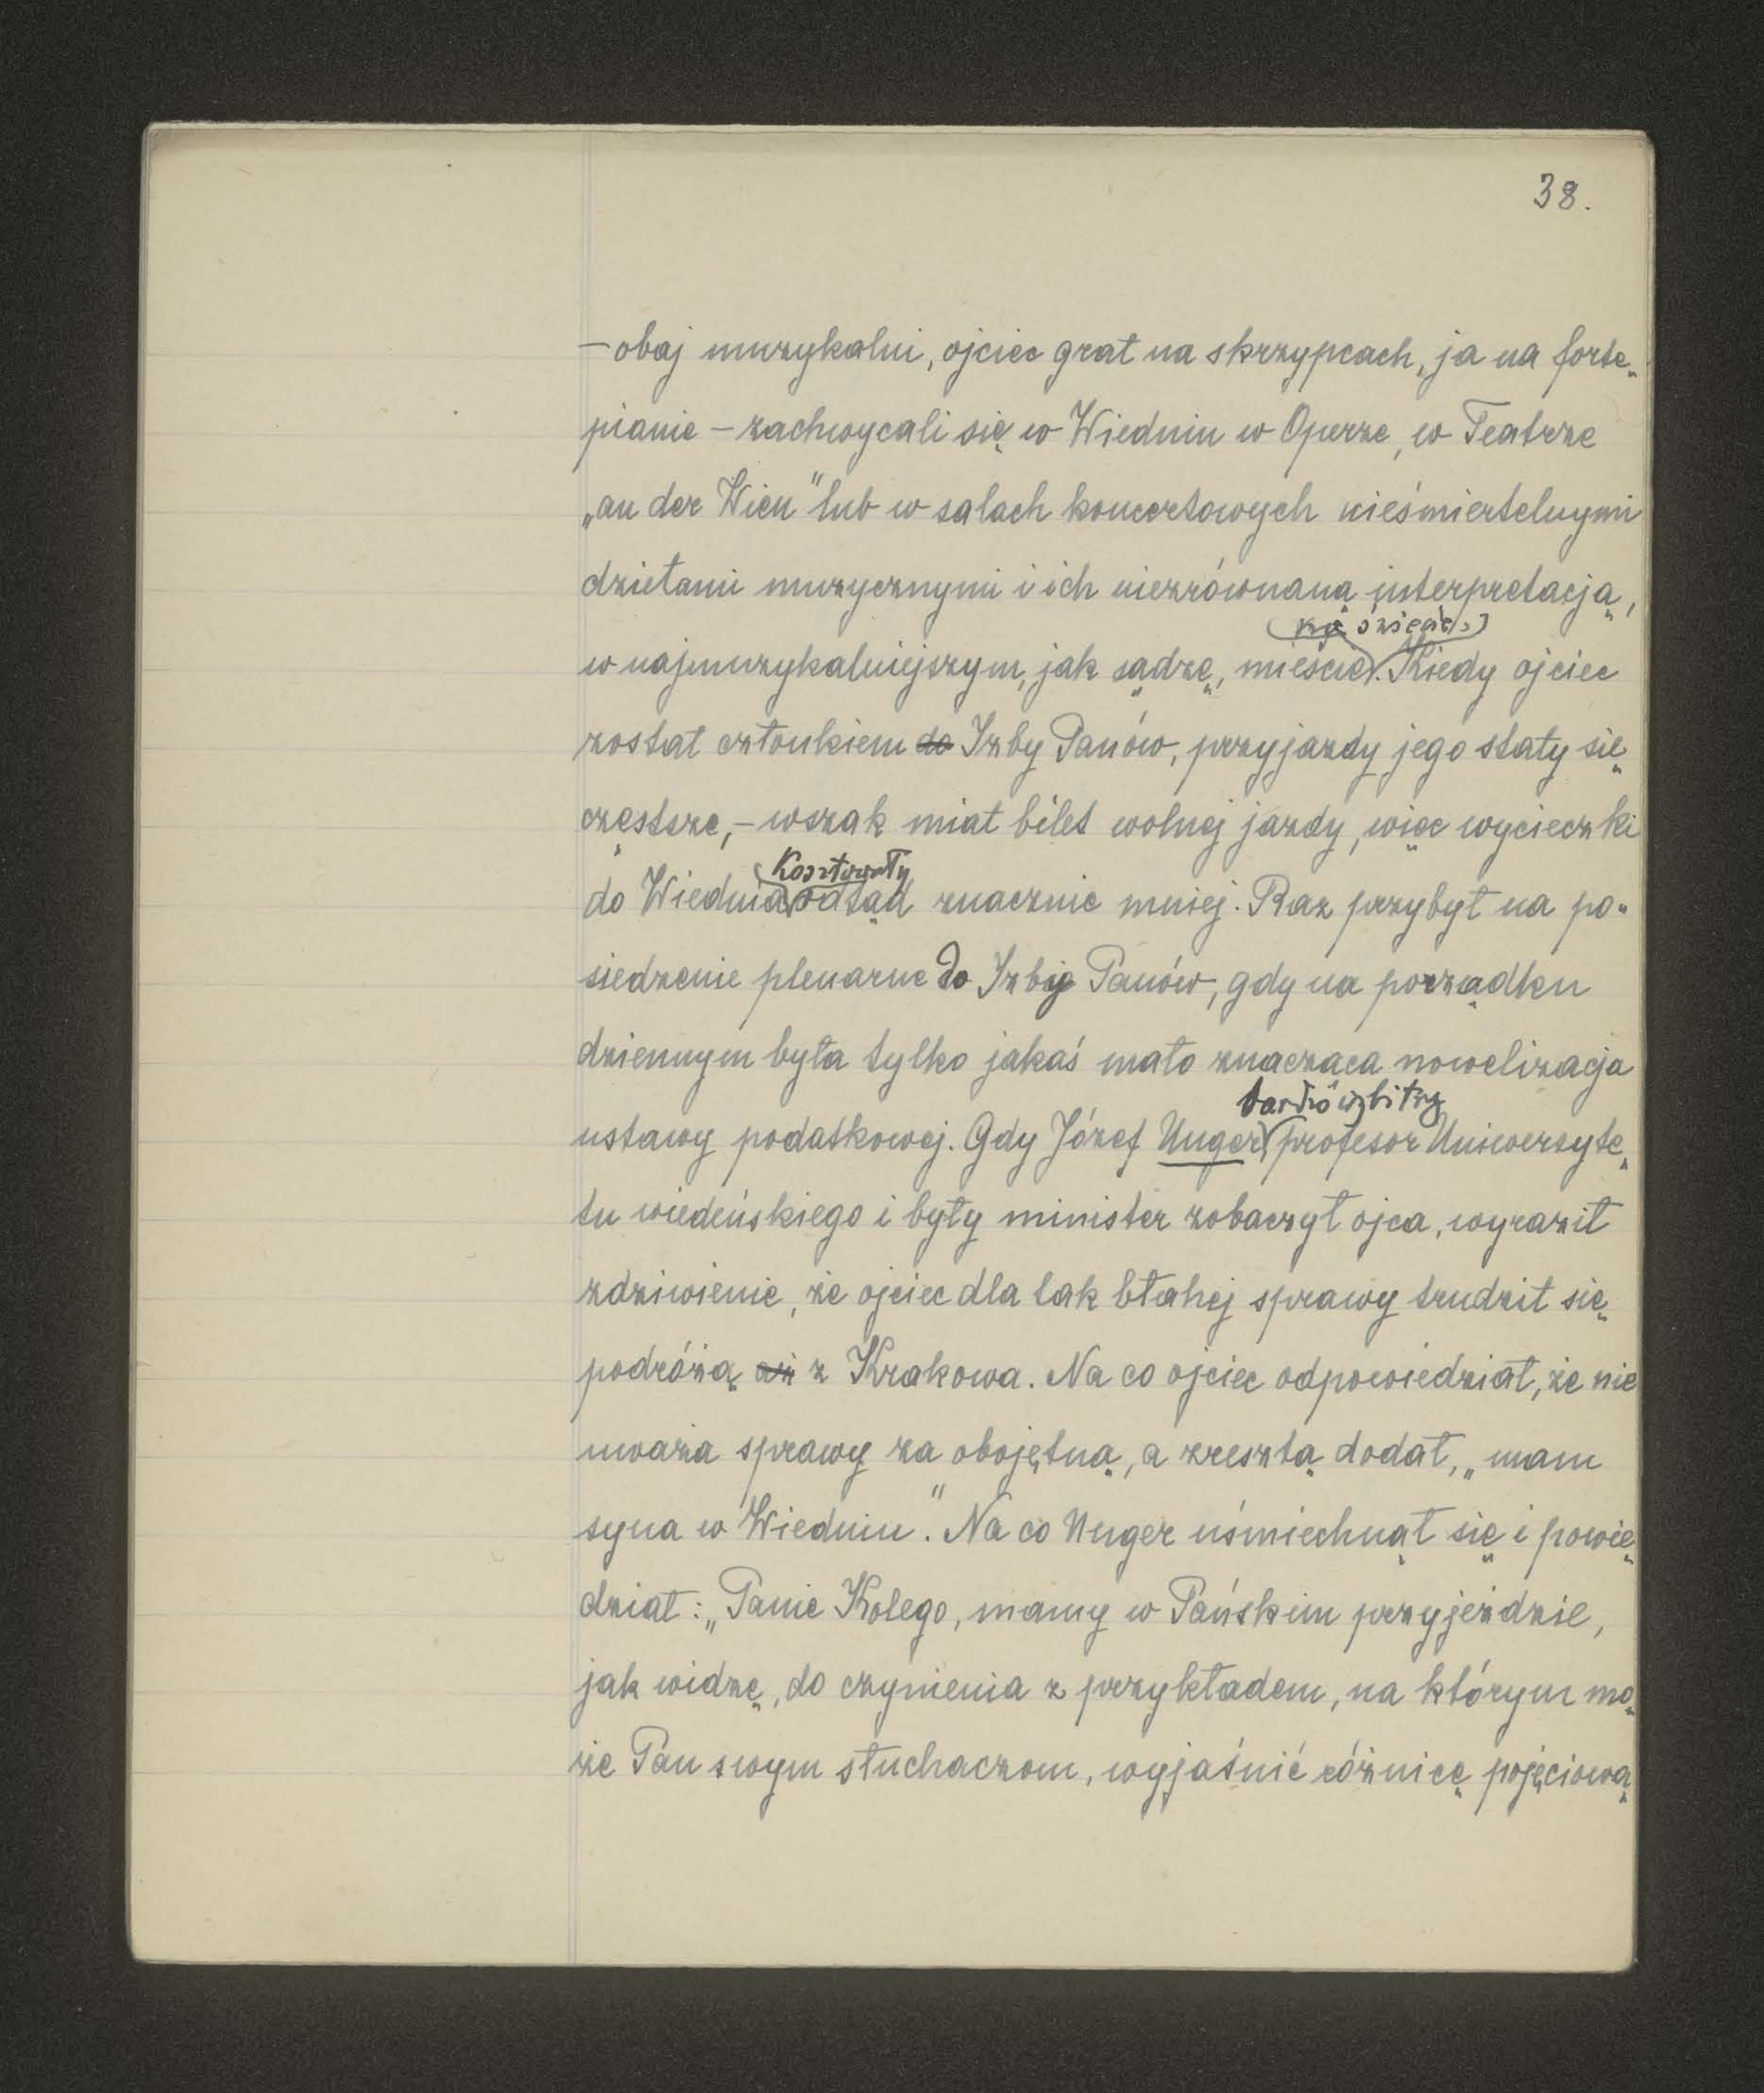 38.
– obaj muzykalni, ojciec grał na skrzypcach, ja na forte-
pianie – zachwycali się w Wiedniu w Operze, w Teatrze
„an der Wien" lub w salach koncertowych nieśmiertelnymi
dziełami muzycznymi i ich niezrównaną interpretacją,
na świecie
w najmuzykalniejszym, jak sądzę, mieście. Kiedy ojciec
został członkiem do Izby Panów, przyjazdy jego stały się
częstsze, – wszak miał bilet wolnej jazdy, więc wycieczki
kosztowały
do Wiednia odtąd znacznie mniej. Raz przybył na po-
siedzenie plenarne do Izby Panów, gdy na porządku
dziennym była tylko jakaś mało znacząca nowelizacja
ustawy podatkowej. Gdy Józef Unger profesor Uniwersyte-
tu wiedeńskiego i były minister zobaczył ojca, wyraził
zdziwienie, że ojciec dla tak błahej sprawy trudził się
podróżą aż z Krakowa. Na co ojciec odpowiedział, że nie
uważa sprawy za obojętną, a zresztą dodał, „mam
syna w Wiedniu". Na co Unger uśmiechnął się i powie-
dział: „Panie Kolego, mamy w Pańskim przyjeździe,
jak widzę, do czynienia z przykładem, na którym mo-
że Pan swym słuchaczom, wyjaśnić różnicę pojęciową